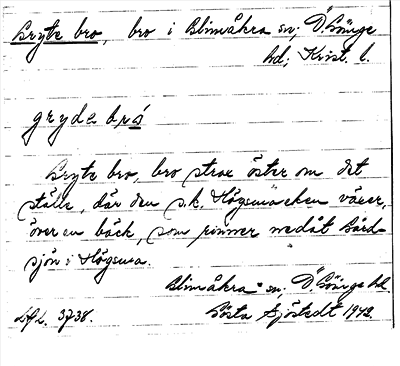 Gryte bro, bro i Glimåkra sn; Ö. Göinge
hd; Krist. l.
grydebró
Gryte bro, bro strax öster om det
ställe, där den s.k. Högsmaeken växer,
över en bäck, som rinner nedåt Gård-
sjön i Högsma.
Glimåkra sn; Ö. Göinge hd.
LAL. 3738. Gösta Sjöstedt 1942.